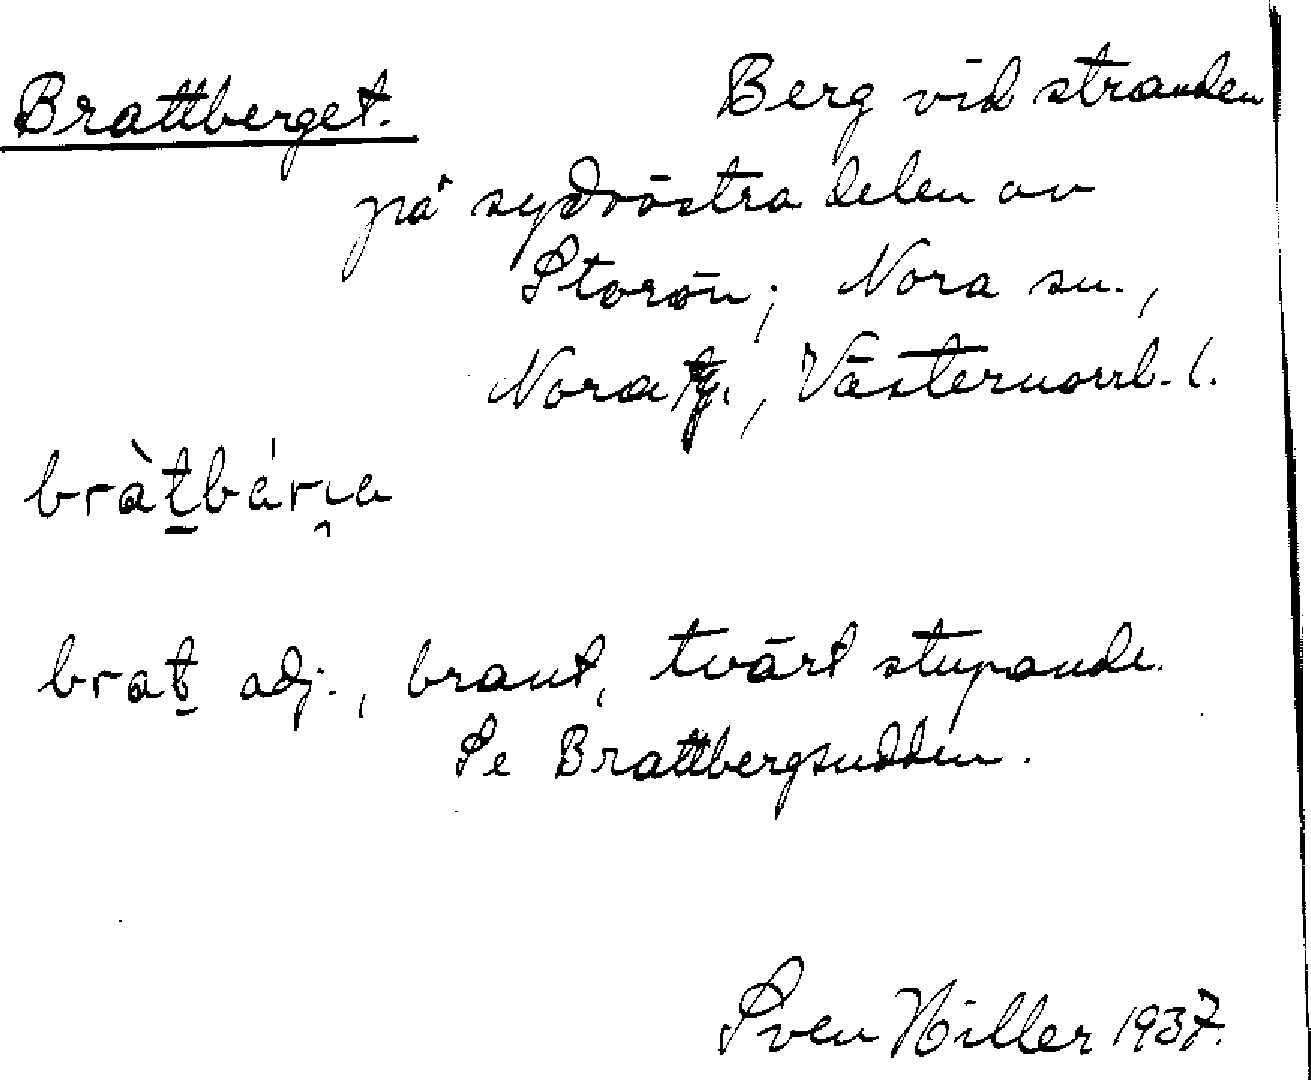 Brattberget. Berg vid stranden
på sydvästra delen av
Storön; Nora sn.,
Nora tg., Västernorrl. l.
bràt̠bárı̯a
brat̠ adj., brant, tvärt stupande.
Se Brattbergsudden.
Sven Hiller 1937.